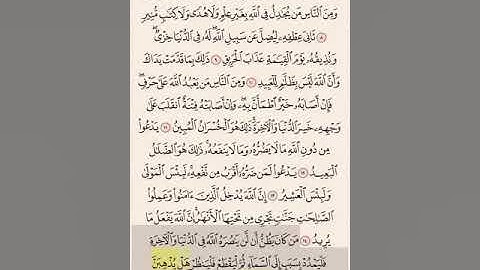 وَمِنَ ٱلنَّاسِ مَن يُجَٰدِلُ فِي ٱللَّهِ بِغَيۡرِ عِلۡمٖ وَلَا هُدٗى وَلَا كِتَٰبٖ مُّنِيرٖ
٨ ثَانِيَ عِطۡفِهِۦ لِيُضِلَّ عَن سَبِيلِ ٱللَّهِۖ لَهُۥ فِي ٱلدُّنۡيَا خِزۡيٞۖ
وَنُذِيقُهُۥ يَوۡمَ ٱلۡقِيَٰمَةِ عَذَابَ ٱلۡحَرِيقِ ٩ ذَٰلِكَ بِمَا قَدَّمَتۡ يَدَاكَ
وَأَنَّ ٱللَّهَ لَيۡسَ بِظَلَّٰمٖ لِّلۡعَبِيدِ ١٠ وَمِنَ ٱلنَّاسِ مَن يَعۡبُدُ ٱللَّهَ عَلَىٰ حَرۡفٖۖ
فَإِنۡ أَصَابَهُۥ خَيۡرٌ ٱطۡمَأَنَّ بِهِۦۖ وَإِنۡ أَصَابَتۡهُ فِتۡنَةٌ ٱنقَلَبَ عَلَىٰ
وَجۡهِهِۦ خَسِرَ ٱلدُّنۡيَا وَٱلۡأٓخِرَةَۚ ذَٰلِكَ هُوَ ٱلۡخُسۡرَانُ ٱلۡمُبِينُ ١١ يَدۡعُواْ
مِن دُونِ ٱللَّهِ مَا لَا يَضُرُّهُۥ وَمَا لَا يَنفَعُهُۥۚ ذَٰلِكَ هُوَ ٱلضَّلَٰلُ
ٱلۡبَعِيدُ ١٢ يَدۡعُواْ لَمَن ضَرُّهُۥٓ أَقۡرَبُ مِن نَّفۡعِهِۦۚ لَبِئۡسَ ٱلۡمَوۡلَىٰ
وَلَبِئۡسَ ٱلۡعَشِيرُ ١٣ إِنَّ ٱللَّهَ يُدۡخِلُ ٱلَّذِينَ ءَامَنُواْ وَعَمِلُواْ
ٱلصَّٰلِحَٰتِ جَنَّٰتٖ تَجۡرِي مِن تَحۡتِهَا ٱلۡأَنۡهَٰرُۚ إِنَّ ٱللَّهَ يَفۡعَلُ مَا
يُرِيدُ ١٤ مَن كَانَ يَظُنُّ أَن لَّن يَنصُرَهُ ٱللَّهُ فِي ٱلدُّنۡيَا وَٱلۡأٓخِرَةِ
فَلۡيَمۡدُدۡ بِسَبَبٍ إِلَى ٱلسَّمَآءِ ثُمَّ لۡيَقۡطَعۡ فَلۡيَنظُرۡ هَلۡ يُذۡهِبَنَّ